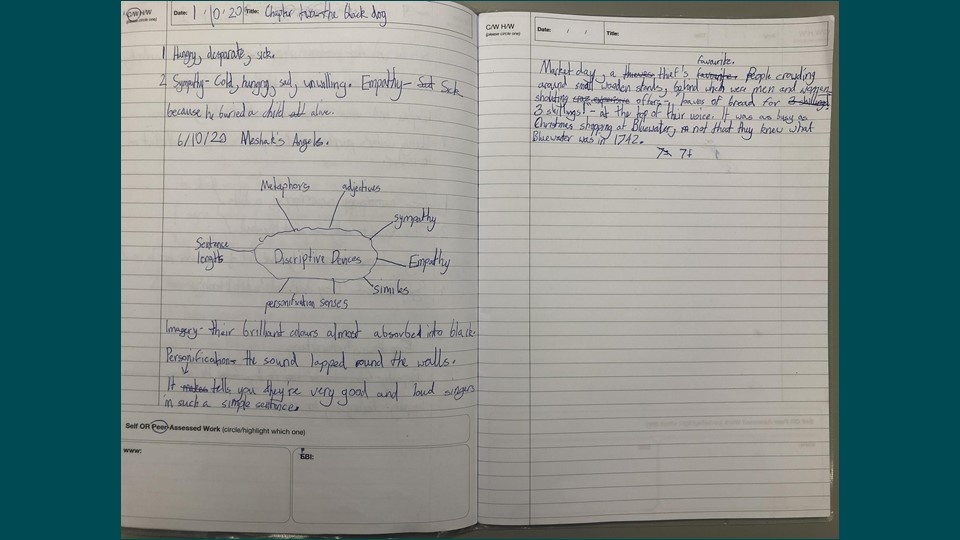 C/W H/W
(please circle one)
Date: 1/10/20 Title: Chapter two the black dog
1 Hungry, desparate, sick.
2 Sympathy- Cold, hungry, sad, unwilling. Empathy- Sick
because he buried a child alive.
6/10/20 Meshak's Angels.
Metaphors
adjectives
sympathy
Sentence
lengths
Discriptive Devices
Empathy
similes
personification
senses
Imagery- their brilliant colours almost absorbed into black.
Personification- the sound lapped round the walls.
It makes tells you they're very good and loud singers
in such a simple sentence.
Self OR Peer-Assessed Work (circle/highlight which one)
www:
EBI:
C/W H/W
(please circle one)
Date: / / Title:
favourite.
Market day, a thieves thief's favourite. People crowding
around small wooden stands, behind which were men and women
shouting offers- loaves of bread for 3 skillings
3 skillings! - at the top of their voice. It was as busy as
Christmas shopping at Bluewater, not that they knew what
Bluewater was in 1742.
72 71